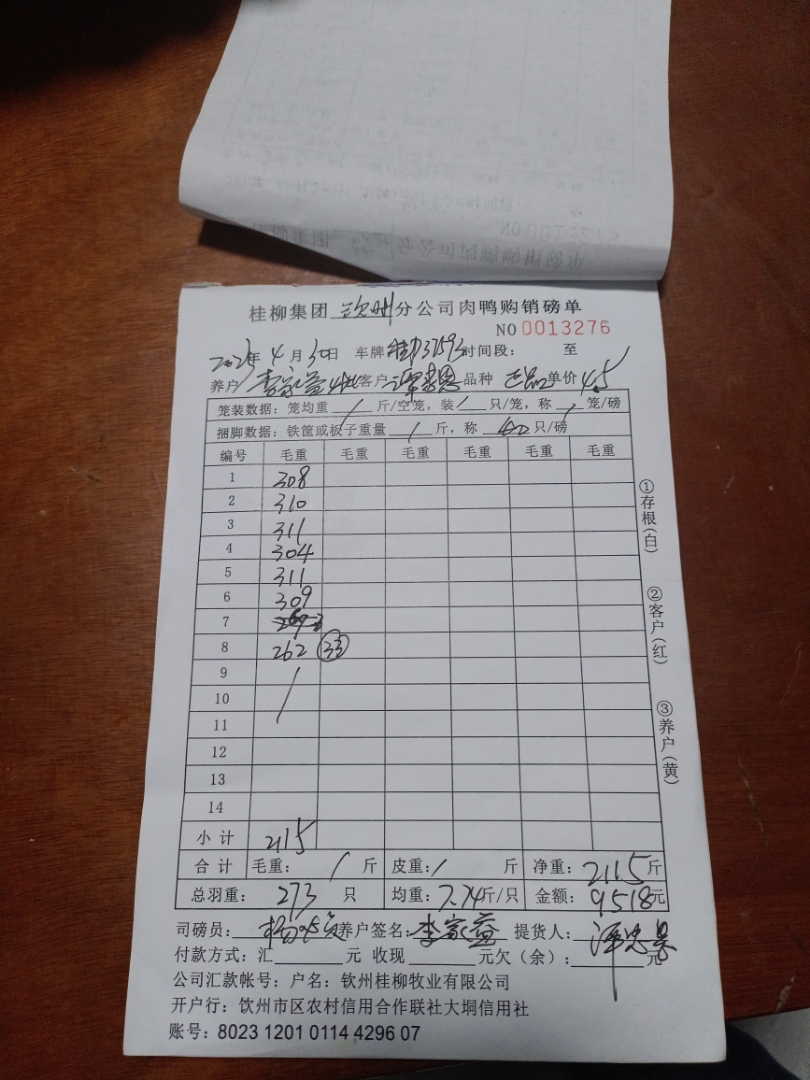 桂柳集团 钦州 分公司肉鸭购销磅单
NO 0013276
年 4 月 30 日 车牌 时间段： 至
养户 李家益 客户 品种 正品 单价 4.5
笼装数据：笼均重 / 斤/空笼，装 / 只/笼，称 / 笼/磅
捆脚数据：铁筐或板子重量 / 斤，称 40 只/磅
编号 毛重 毛重 毛重 毛重 毛重 毛重
1 308
2 310
3 311
4 304
5 311
6 309
7
8 262 33
9 /
10
11
12
13
14
小计 2115
合计 毛重： / 斤 皮重： / 斤 净重： 2115 斤
总羽重： 273 只 均重： 7.74 斤/只 金额： 9518 元
司磅员： 养户签名： 李家益 提货人：
付款方式：汇 元 收现 元欠（余）： 元
公司汇款帐号：户名：钦州桂柳牧业有限公司
开户行：钦州市区农村信用合作联社大垌信用社
账号：8023 1201 0114 4296 07
①存根(白)
②客户(红)
③养户(黄)